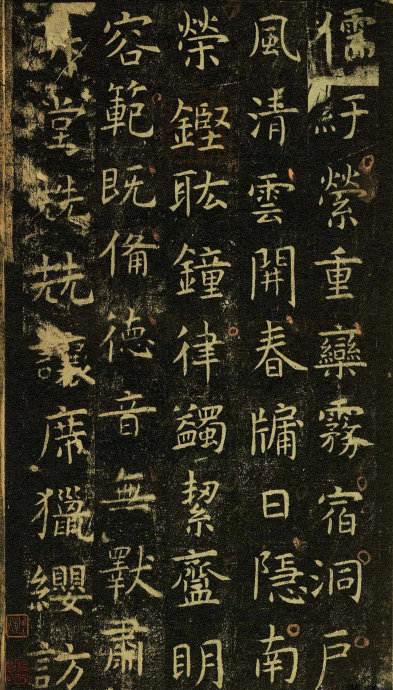 儒紆縈重欒霧宿洞戶
風清雲開春牖日隱南
榮鏗耾鐘律蠲絜齍明
容範既備德音無斁肅
堂兢兢讓席獵纓訪